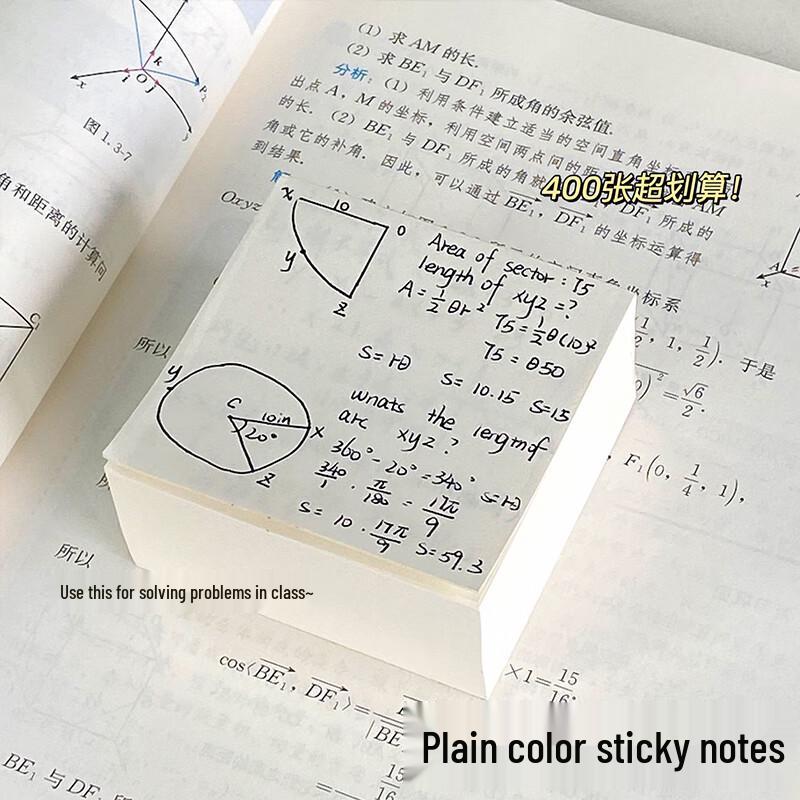 (1) 求 AM 的长.
(2) 求 BE₁ 与 DF₁ 所成角的余弦值.
分析: (1) 利用条件建立适当的空间直角坐标
出点 A, M 的坐标, 利用空间两点间的距
的长. (2) BE₁ 与 DF₁ 所成的角就
DF₁ 所成的
角或它的补角. 因此, 可以通过 BE₁, DF₁ 的坐标运算得
到结果.
AM
400张超划算!
k
O
i
j
x
P₂
图 1.3-7
角和距离的计算问
C₁
Oxyz
坐标系
1/2, 1, 1/2). 于是
)² = √6/2.
, F₁(0, 1/4, 1),
所以
所以
x
10
O
y
z
Area of sector: 75
length of xyz = ?
A = 1/2 θr²
75 = 1/2 θ(10)²
75 = θ50
S = rθ
S = 10.15 S=15
y
C
10in
20°
x
z
wnats the lengmof
arc xyz?
360° - 20° = 340° S=rθ
340/1 · π/180 = 17π/9
S = 10 · 17π/9 S=59.3
Use this for solving problems in class~
cos⟨BE₁, DF₁⟩=
|BE
×1=15/16.
Plain color sticky notes
BE₁ 与 DF₁ 所
=15/16